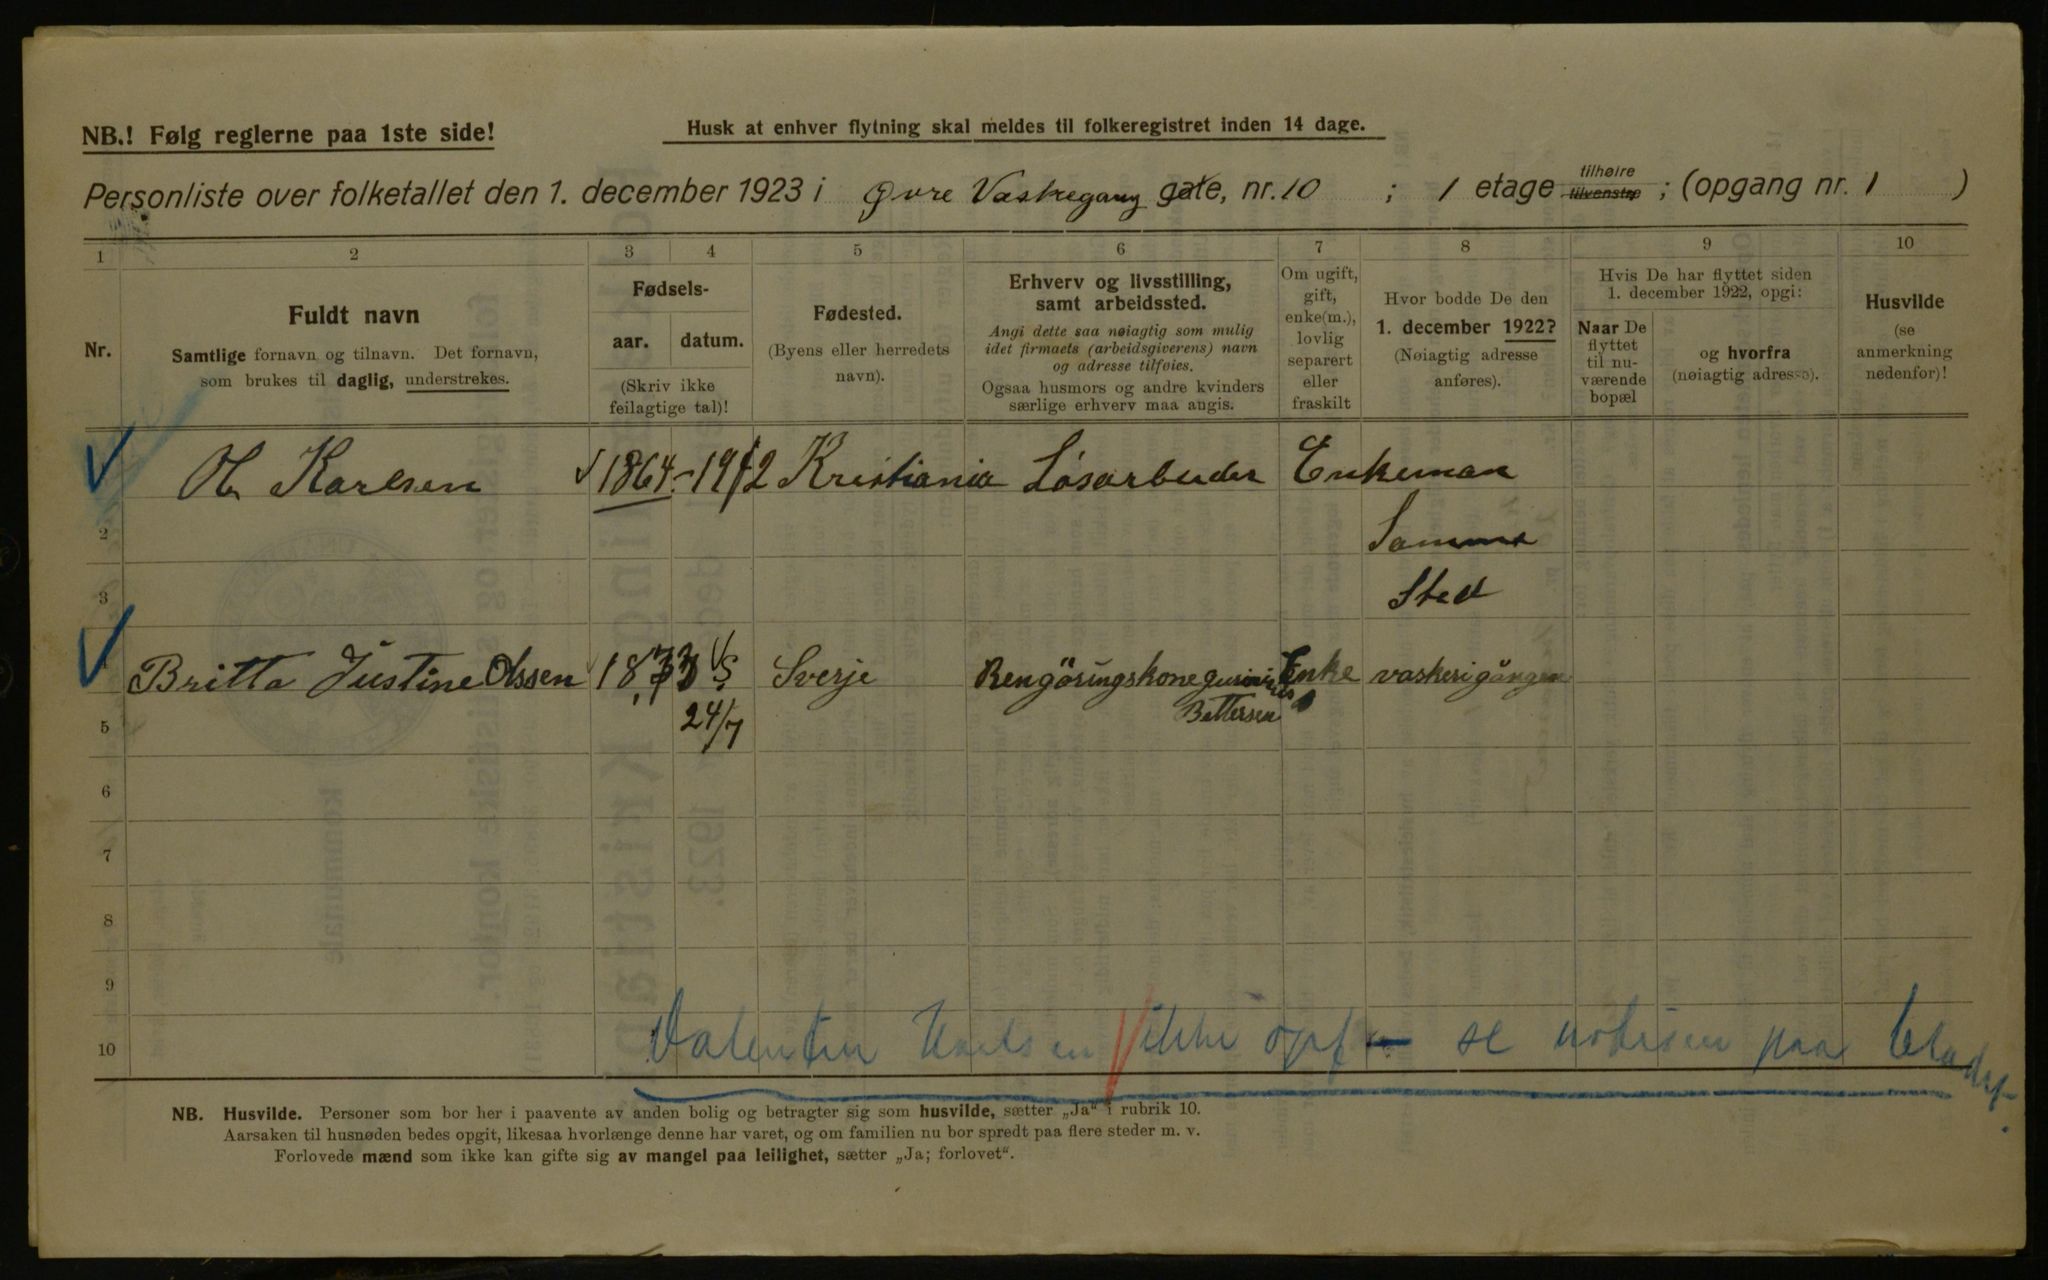 NB.! Følg reglerne paa 1ste side!
Husk at enhver flytning skal meldes til folkeregistret inden 14 dage.
Personliste over folketallet den 1. december 1923 i Øvre Vaskegang gate, nr. 10 ; 1 etage tilhøire tilvenstre ; (opgang nr. 1 )
1 2 3 4 5 6 7 8 9 10
Nr.
Fuldt navn
Samtlige fornavn og tilnavn. Det fornavn,
som brukes til daglig, understrekes.
Fødsels-
aar. datum.
(Skriv ikke
feilagtige tal)!
Fødested.
(Byens eller herredets
navn).
Erhverv og livsstilling,
samt arbeidssted.
Angi dette saa nøiagtig som mulig
idet firmaets (arbeidsgiverens) navn
og adresse tilføies.
Ogsaa husmors og andre kvinders
særlige erhverv maa angis.
Om ugift,
gift,
enke(m.),
lovlig
separert
eller
fraskilt
Hvor bodde De den
1. december 1922?
(Nøiagtig adresse
anføres).
Hvis De har flyttet siden
1. december 1922, opgi:
Naar De
flyttet
til nu-
værende
bopæl
og hvorfra
(nøiagtig adresse).
Husvilde
(se
anmerkning
nedenfor)!
Karlsen 1864 - 19/12 Kristiania Løsarbeider Enkeman
2 Samme
3 Sted
Britta Justine Olssen Sverje Rengöringskone Enke vaskerigången
5 24/7 Bettersen
6
7
8
9
10 Valentin ikke opf - se notisen paa
NB. Husvilde. Personer som bor her i paavente av anden bolig og betragter sig som husvilde, sætter „Ja" i rubrik 10.
Aarsaken til husnøden bedes opgit, likesaa hvorlænge denne har varet, og om familien nu bor spredt paa flere steder m. v.
Forlovede mænd som ikke kan gifte sig av mangel paa leilighet, sætter „Ja; forlovet".